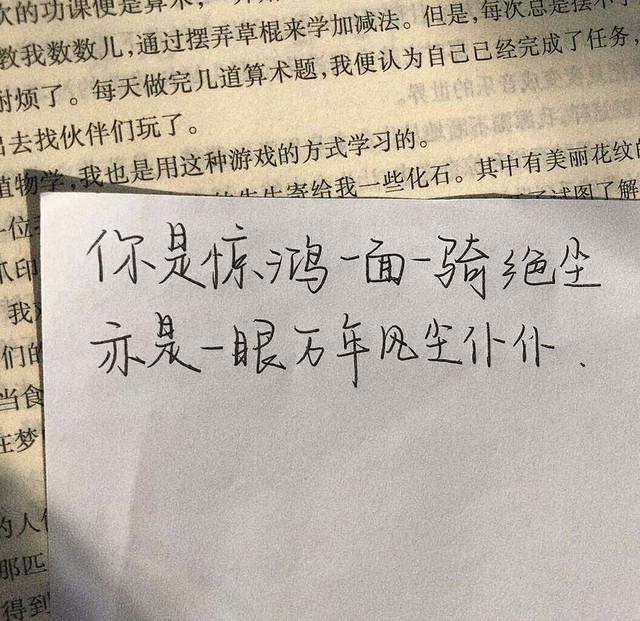 次的功课便是算术,
教我数数儿,通过摆弄草棍来学加减法。但是,每次总是摆不
耐烦了。每天做完几道算术题,我便认为自己已经完成了任务,
出去找伙伴们玩了。
植物学,我也是用这种游戏的方式学习的。
先生寄给我一些化石。其中有美丽花纹的
一位
试图了解
爪印
我
们的
当食
在梦
的人
那匹
得到
你是惊鸿一面一骑绝尘
亦是一眼万年风尘仆仆.